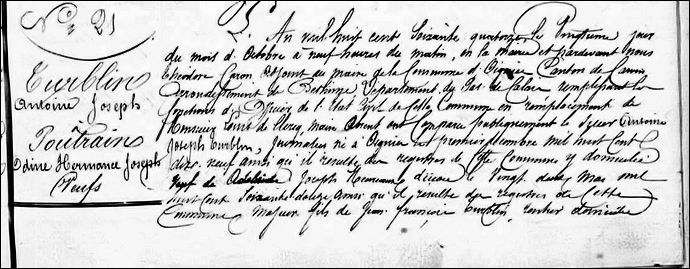 N° 21
Turblin
Antoine Joseph
Poûtrain
Odine Hermance Joseph
Veufs
L'An mil huit cent Soixante quatorze le Vingtieme jour
du mois d'Octobre à neuf heures du matin, en la mairie et pardevant nous
Theodore Caron Adjoint au maire de la Commune d'Oignies Canton de Carvin
Arrondissement de Bethune Departement du Pas de Calais remplissant les
fonctions d'Officier de l'Etat Civil de cette Commune en remplacement de
Monsieur Louis de Clercq, maire Absent ont Comparu publiquement le Sieur Antoine
Joseph Turblin, Journalier né à Oignies le premier septembre mil huit Cent
dix neuf ainsi qu'il resulte des registres de cette Commune y domicilié
Veuf de Adelaide Joseph decedée le Vingt deux Mai mil
huit Cent Soixante douze ainsi qu'il resulte des registres de cette
Commune majeur fils de Jean francois Turblin, rentier domicilié